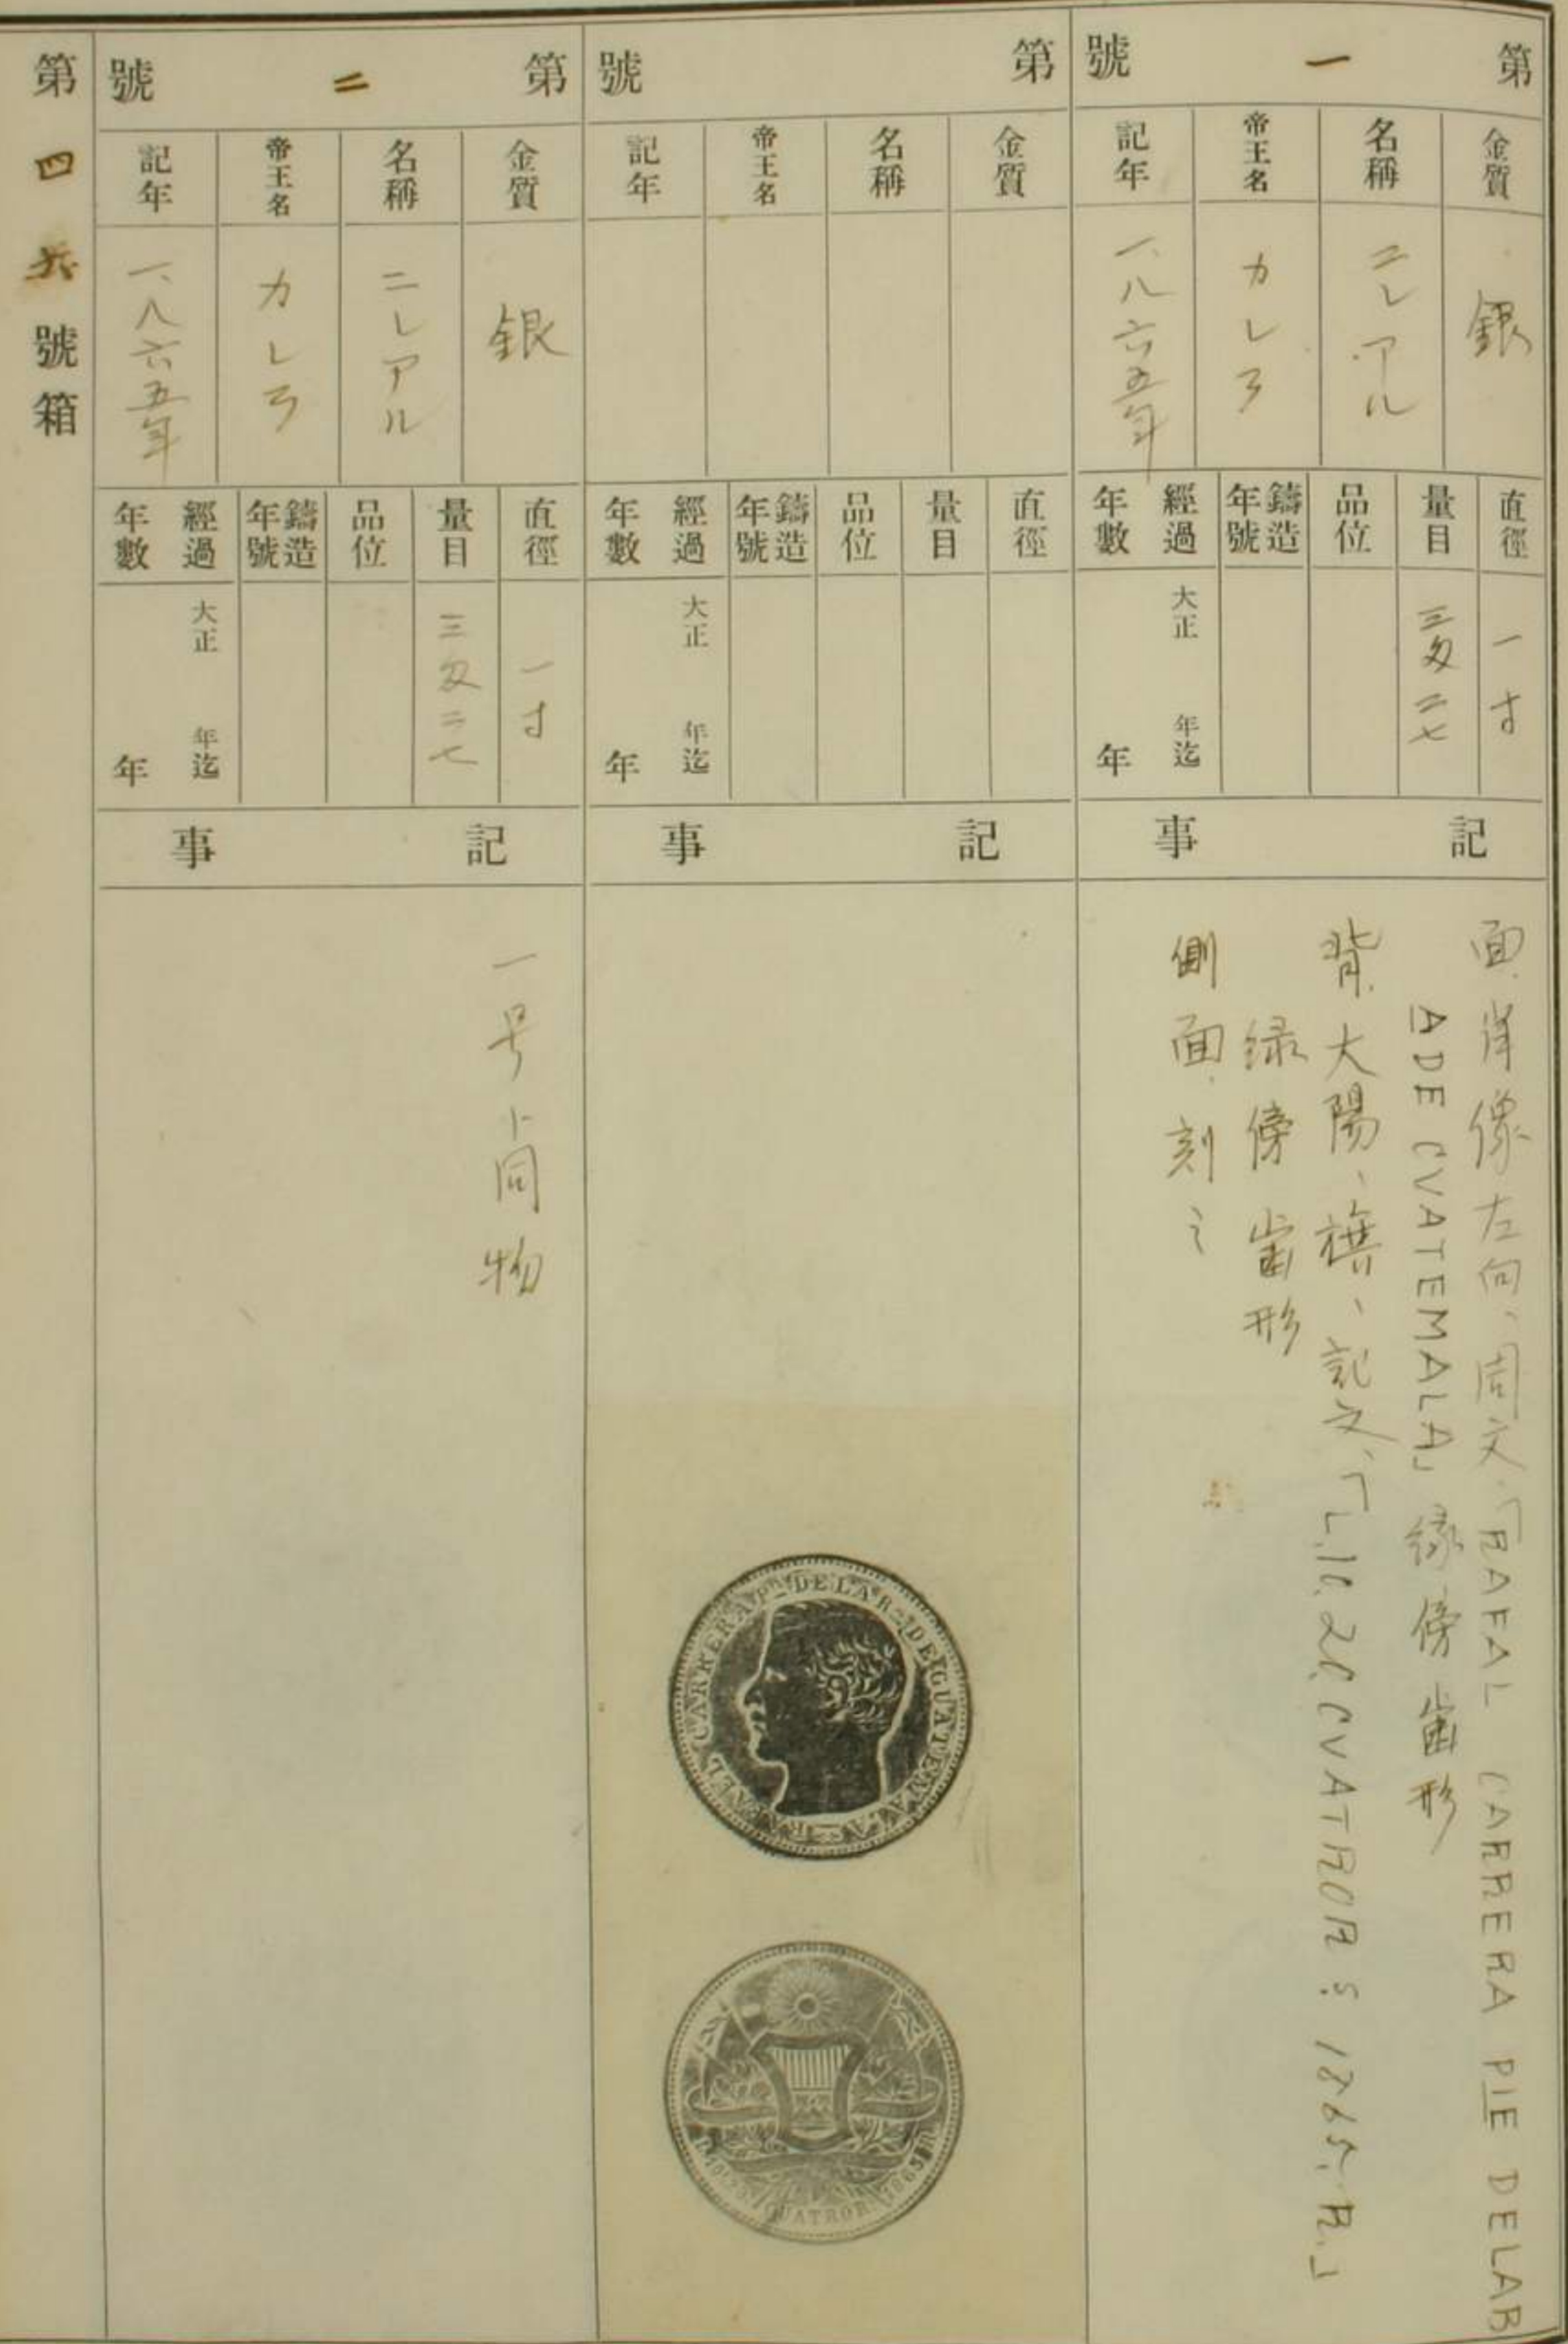 第一號
金質
銀
名稱
二レアル
帝王名
カレラ
記年
一、八六五年
直徑
一寸
量目
三匁二七
品位
鑄造年號
經過年數
大正 年迄
年
記事
面、肖像左向、周文、「RAFAL CARRERA PIE DELAB
ADE CVATEMALA」縁傍歯形
背、大陽、旗、記文、「L.10.20.CVATROR S 1865.R.」
緑傍歯形
側面、刻ミ
第 號
金質
名稱
帝王名
記年
直徑
量目
品位
鑄造年號
經過年數
大正 年迄
年
記事
RAFAEL CARRERA Pᵀᴱ DE LA Rᴬ DE GUATEMALA
QUATROR 1865 R
第二號
金質
銀
名稱
二レアル
帝王名
カレラ
記年
一、八六五年
直徑
一寸
量目
三匁二七
品位
鑄造年號
經過年數
大正 年迄
年
記事
一号ト同物
第四 號箱